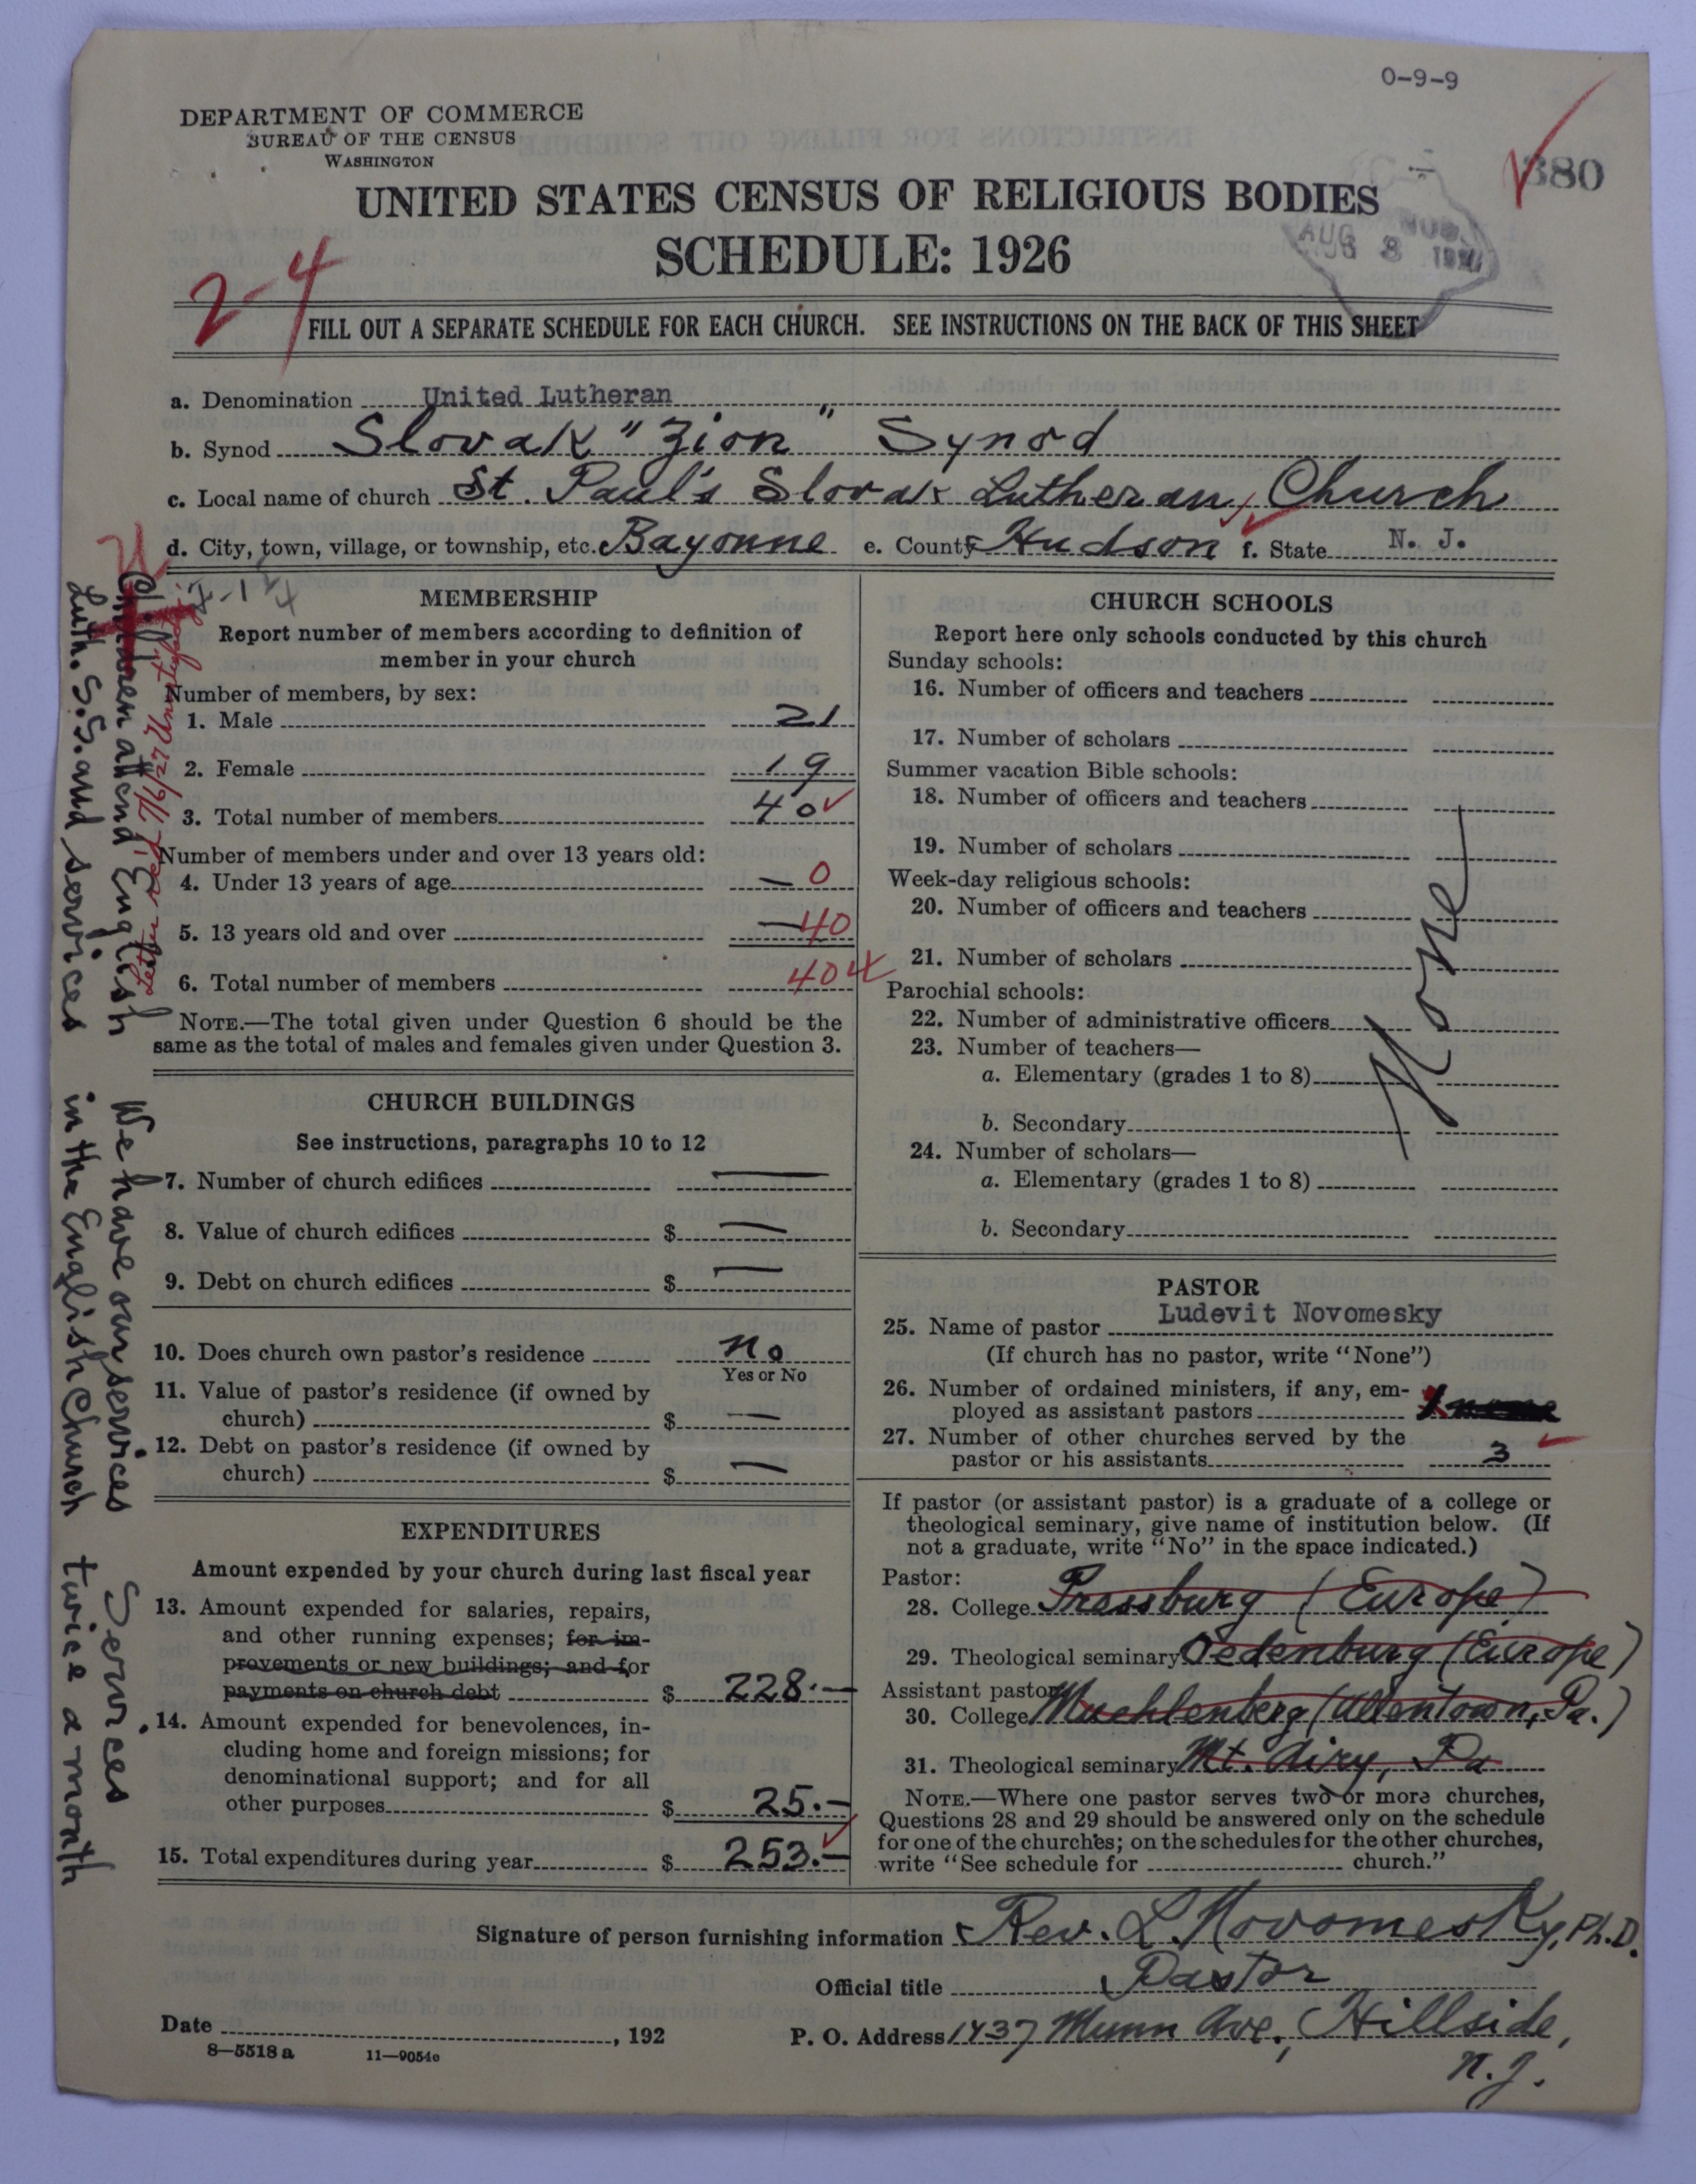 0-9-9
DEPARTMENT OF COMMERCE
BUREAU OF THE CENSUS
WASHINGTON
380
UNITED STATES CENSUS OF RELIGIOUS BODIES
SCHEDULE: 1926
AUG 8
2-4
FILL OUT A SEPARATE SCHEDULE FOR EACH CHURCH. SEE INSTRUCTIONS ON THE BACK OF THIS SHEET
a. Denomination United Lutheran
b. Synod Slovak "Zion" Synod
c. Local name of church St. Paul's Slovak Lutheran Church
d. City, town, village, or township, etc. Bayonne e. County Hudson f. State N. J.
MEMBERSHIP
Report number of members according to definition of
member in your church
Number of members, by sex:
1. Male 21
2. Female 19
3. Total number of members 40
Number of members under and over 13 years old:
4. Under 13 years of age — 0
5. 13 years old and over — 40
6. Total number of members 40
NOTE.—The total given under Question 6 should be the
same as the total of males and females given under Question 3.
CHURCH BUILDINGS
See instructions, paragraphs 10 to 12
7. Number of church edifices —
8. Value of church edifices $ —
9. Debt on church edifices $ —
10. Does church own pastor's residence no
Yes or No
11. Value of pastor's residence (if owned by
church) $ —
12. Debt on pastor's residence (if owned by
church) $ —
EXPENDITURES
Amount expended by your church during last fiscal year
13. Amount expended for salaries, repairs,
and other running expenses; for im-
provements or new buildings; and for
payments on church debt $ 228.—
14. Amount expended for benevolences, in-
cluding home and foreign missions; for
denominational support; and for all
other purposes $ 25.—
15. Total expenditures during year $ 253.—
CHURCH SCHOOLS
Report here only schools conducted by this church
Sunday schools:
16. Number of officers and teachers
17. Number of scholars
Summer vacation Bible schools:
18. Number of officers and teachers
19. Number of scholars
Week-day religious schools:
20. Number of officers and teachers
21. Number of scholars
Parochial schools:
22. Number of administrative officers
23. Number of teachers—
a. Elementary (grades 1 to 8)
b. Secondary
24. Number of scholars—
a. Elementary (grades 1 to 8)
b. Secondary
None
PASTOR
25. Name of pastor Ludevit Novomesky
(If church has no pastor, write "None")
26. Number of ordained ministers, if any, em-
ployed as assistant pastors
27. Number of other churches served by the
pastor or his assistants 3
If pastor (or assistant pastor) is a graduate of a college or
theological seminary, give name of institution below. (If
not a graduate, write "No" in the space indicated.)
Pastor:
28. College Pressburg (Europe)
29. Theological seminary Oedenburg (Europe)
Assistant pastor:
30. College Muehlenberg (Allentown, Pa.)
31. Theological seminary Mt. Airy, Pa
NOTE.—Where one pastor serves two or more churches,
Questions 28 and 29 should be answered only on the schedule
for one of the churches; on the schedules for the other churches,
write "See schedule for church."
Signature of person furnishing information Rev. L Novomesky, Ph.D.
Official title Pastor
Date , 192
P. O. Address 1437 Munn Ave., Hillside,
N. J.
8—5518 a 11—9054c
Children attend English
Luth. S.S. and services
We have our services
in the English Church
Services
twice a month